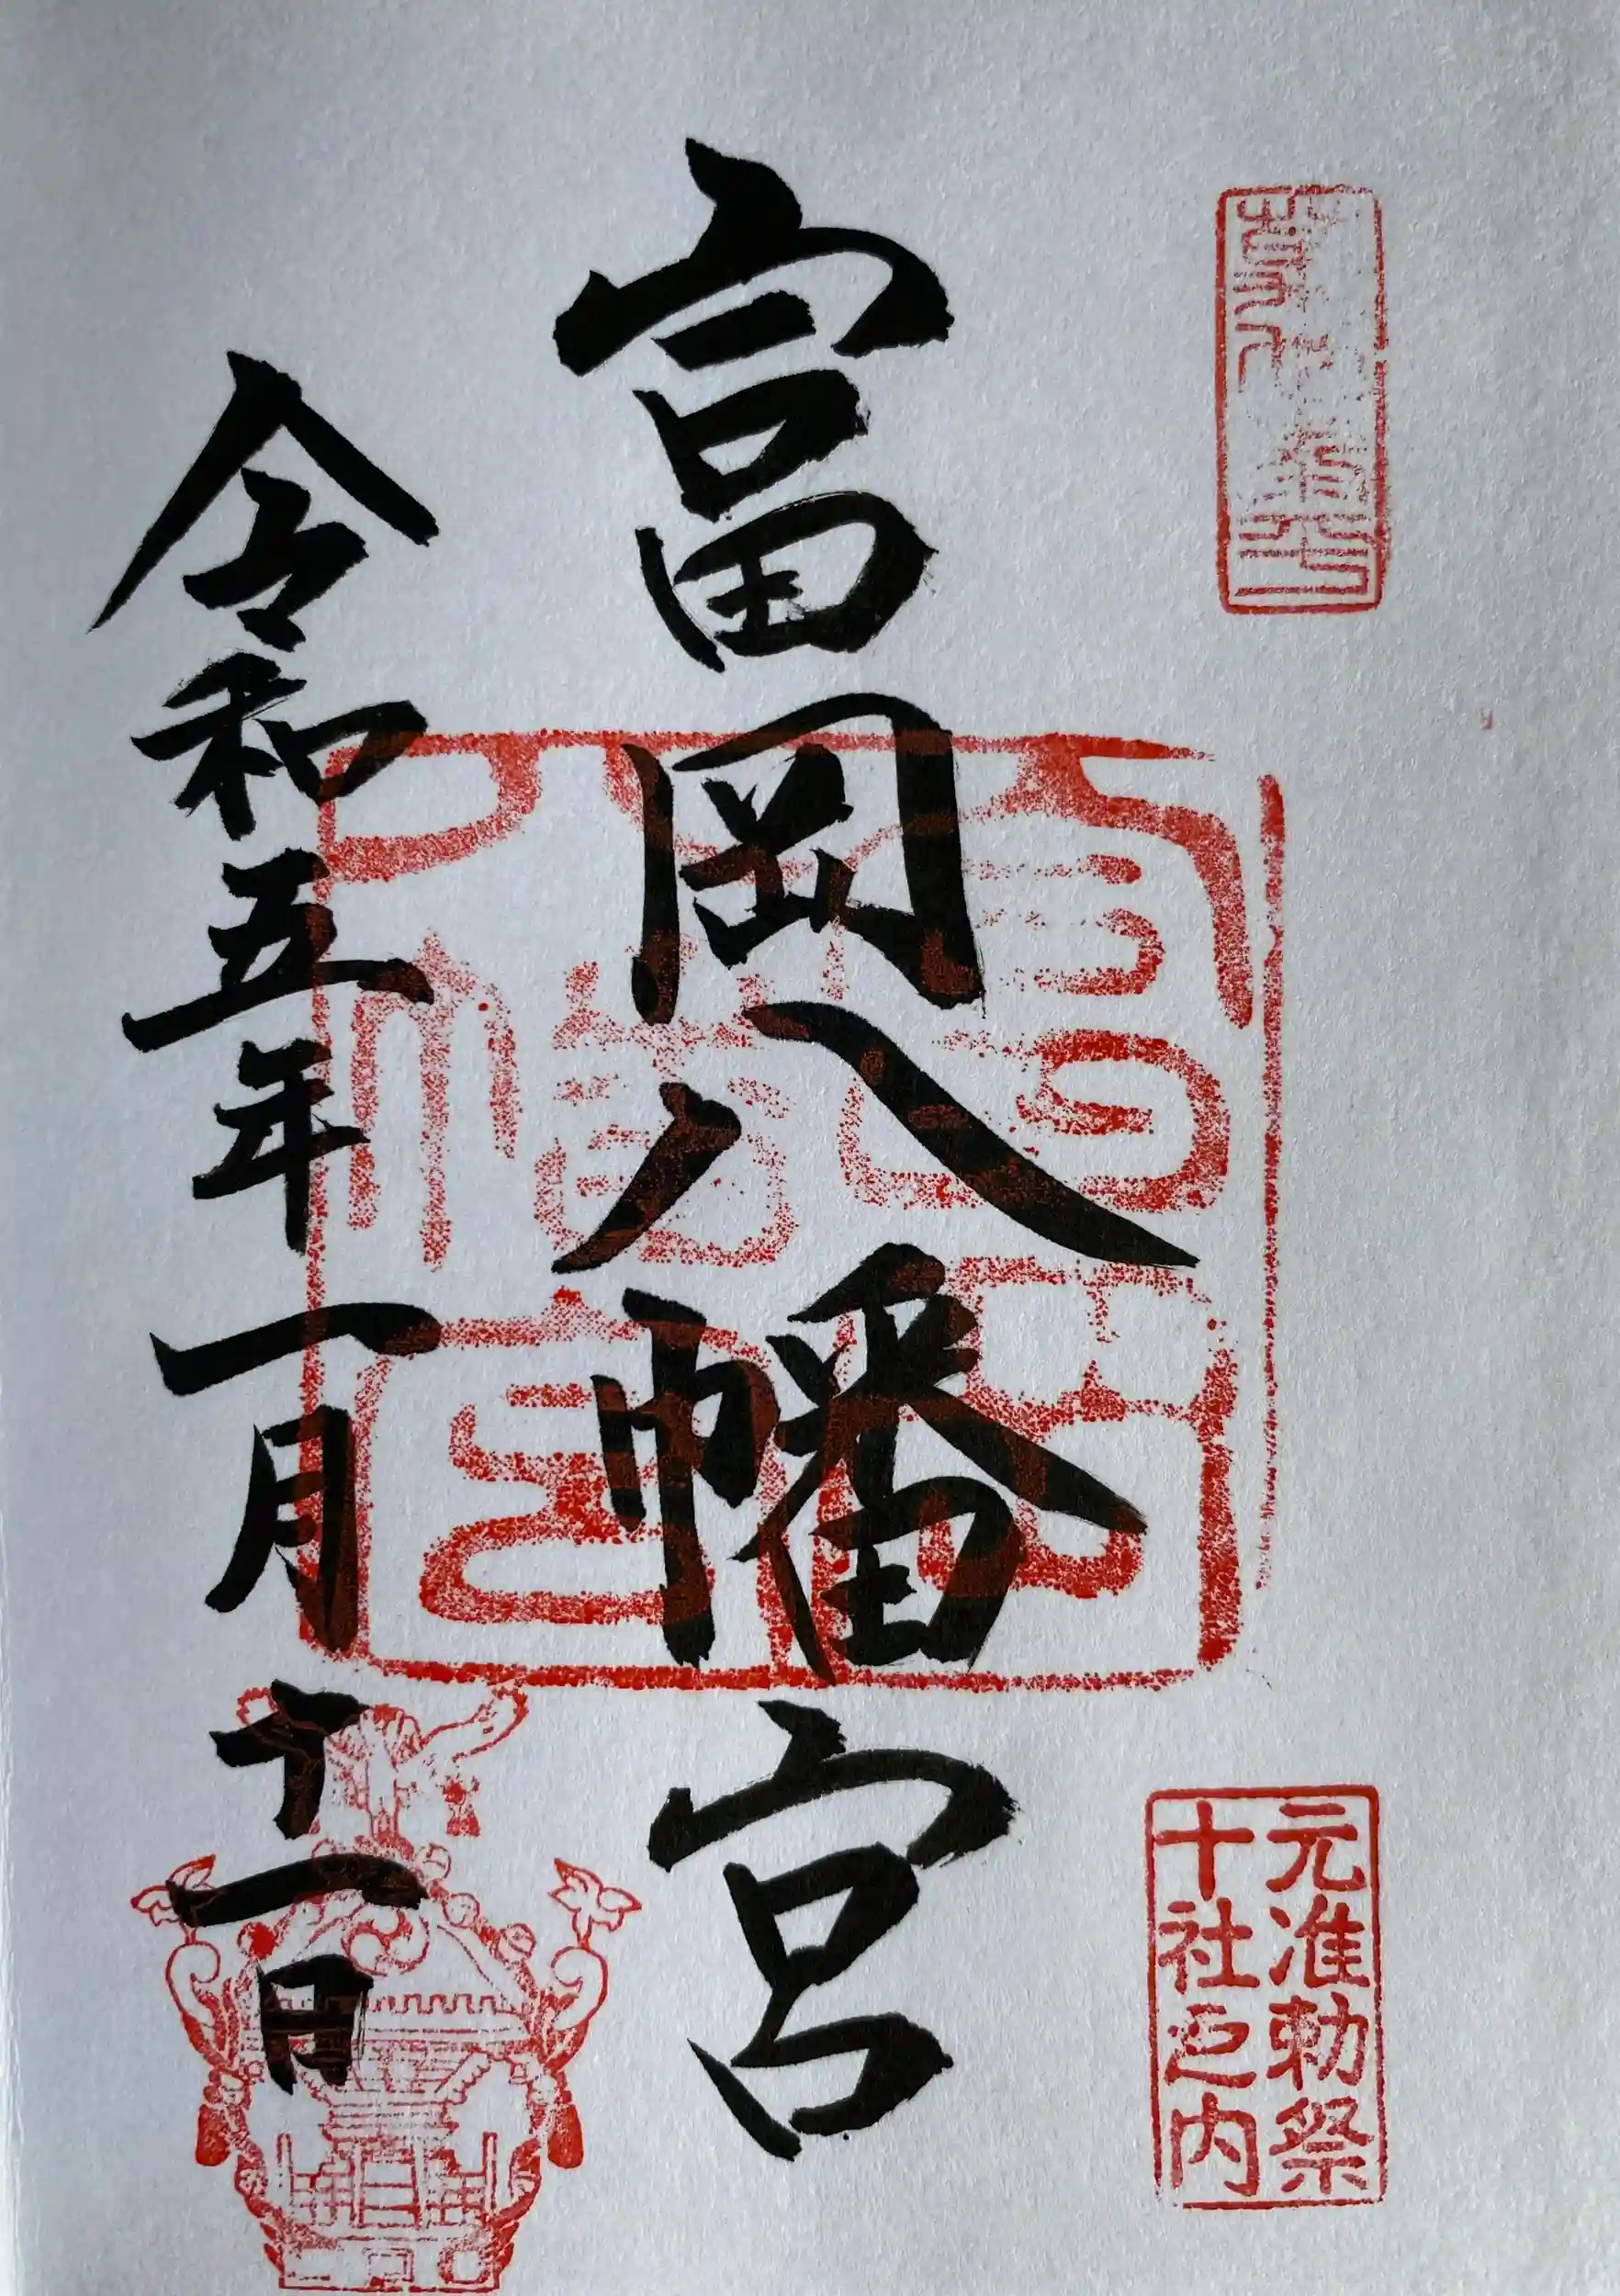 元准勅祭
十社之内
富岡八幡宮
令和五年一月十一日